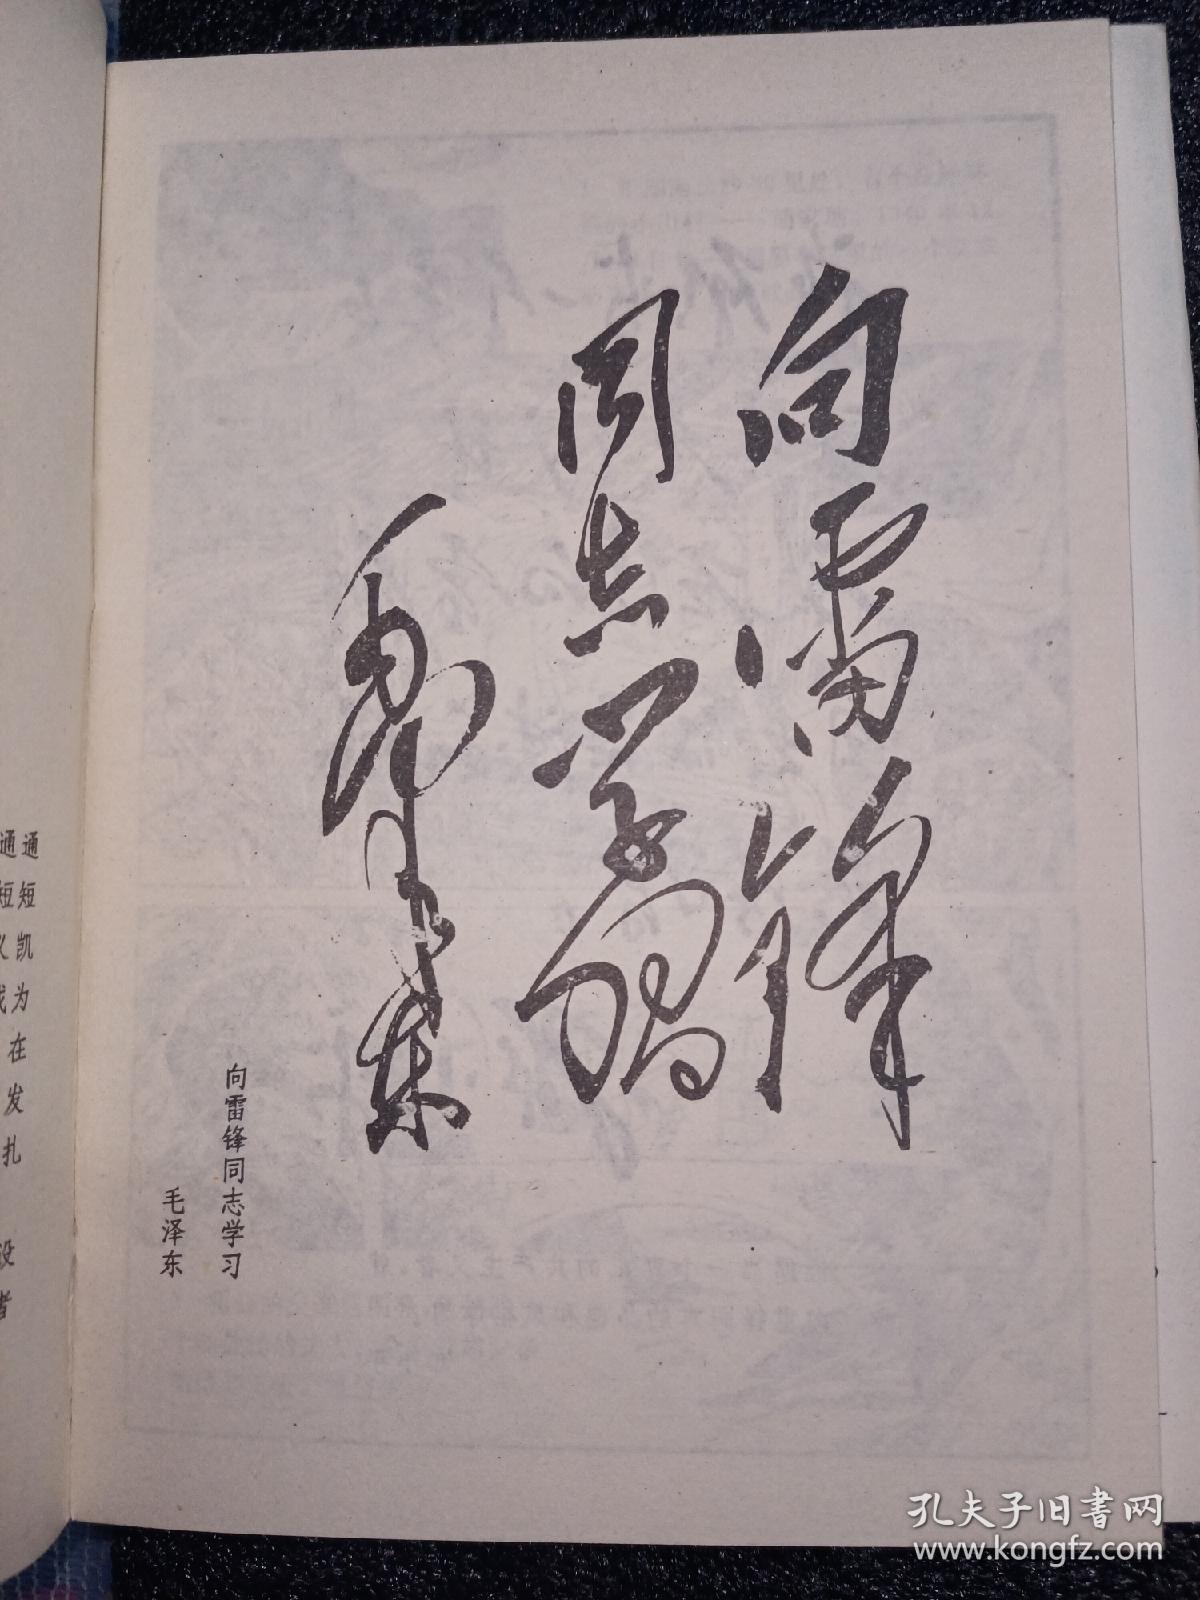 向雷锋
同志学习
毛泽东
向雷锋同志学习
毛泽东
通通
短短
凯
为
在
发
扎
设
者
孔夫子旧书网
www.kongfz.com